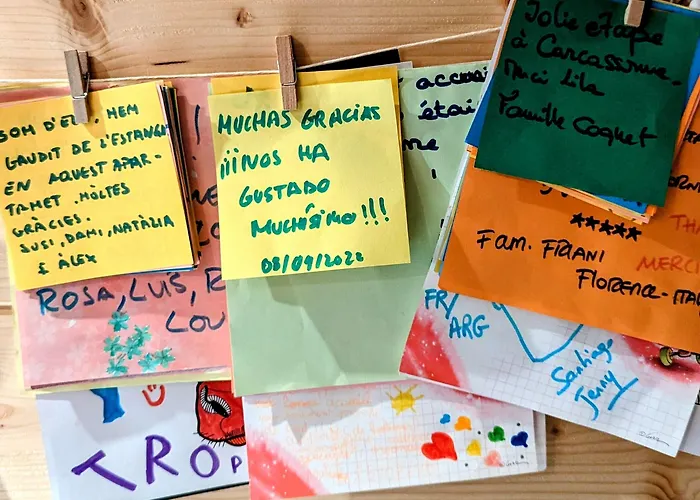 SOM D'ELX, HEM
GAUDIT DE L'ESTANÇA
EN AQUEST APAR-
TAMET. MOLTES
GRÀCIES.
SUSI, DAMI, NATÀLIA
& ÀLEX
ROSA, LUIS, R
LOU
TROP
MUCHAS GRACIAS
¡¡¡NOS HA
GUSTADO
MUCHÍSIMO!!!
08/09/2022
accu
étai
me
Jolie etape
à Carcassonne.
Merci Lila
Famille Coquet
★★★★★
FAM. FRIANI
FLORENCE-ITA
THA
MERCI
FR/
ARG
Santiago
Jenny